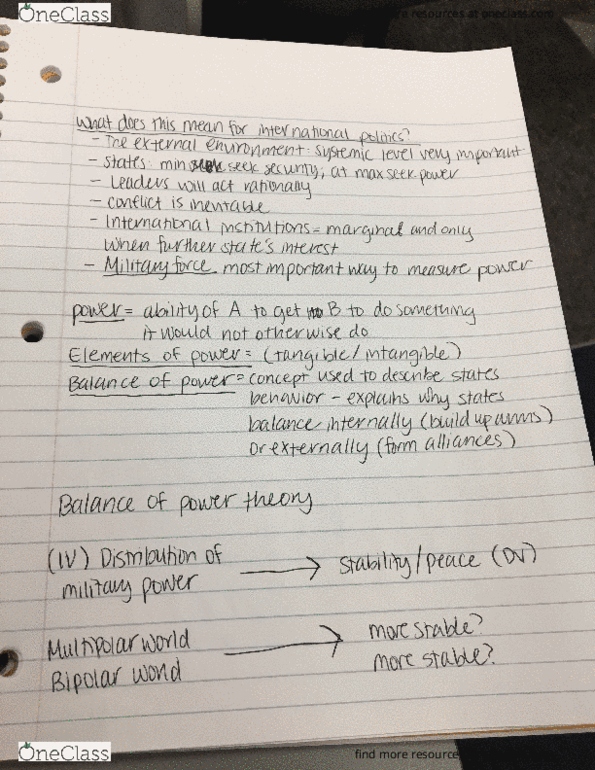 OneClass
re resources at oneclass.com
What does this mean for international politics?
- The external environment: systemic level very important
- States: min seek security; at max seek power
- Leaders will act rationally
- conflict is inevitable
- International Institutions = marginal and only
when further state's interest
- Military force most important way to measure power
power = ability of A to get B to do something
it would not otherwise do
Elements of power = (tangible/intangible)
Balance of power = concept used to describe states
behavior - explains why states
balance internally (build up arms)
or externally (form alliances)
Balance of power theory
(IV) Distribution of → stability/peace (DV)
military power
Multipolar world → more stable?
Bipolar world more stable?
OneClass
find more resource